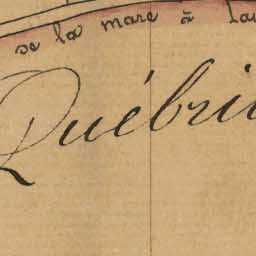 se la mare à
Québri